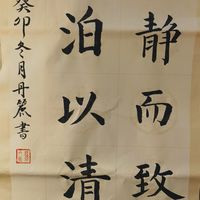 静而致
泊以清
癸卯冬月丹篪書